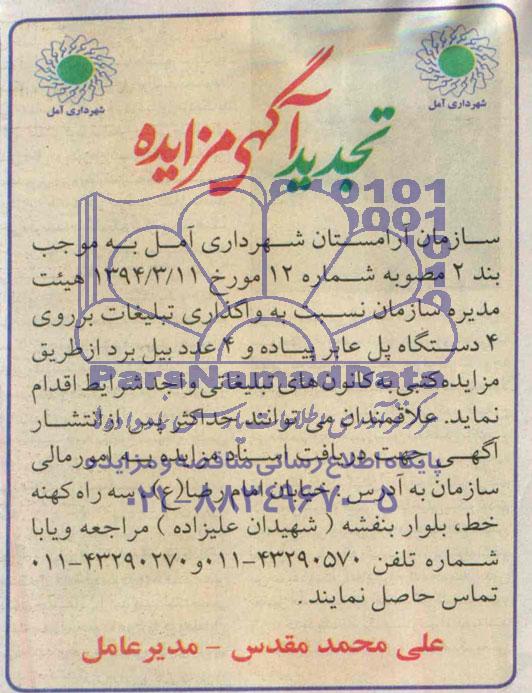 شهرداری آمل
شهرداری آمل
تجدید آگهی مزایده
سازمان آرامستان شهرداری آمل به موجب
بند ۲ مصوبه شماره ۱۲ مورخ ۱۳۹۴/۳/۱۱ هیئت
مدیره سازمان نسبت به واگذاری تبلیغات برروی
۴ دستگاه پل عابر پیاده و ۴ عدد بیل برد ازطریق
مزایده کتبی به کانون های تبلیغاتی واجد شرایط اقدام
نماید. علاقمندان می توانند حداکثر پس از انتشار
آگهی جهت دریافت اسناد مزایده به امورمالی
سازمان به آدرس : خیابان امام رضا(ع)، سه راه کهنه
خط، بلوار بنفشه ( شهیدان علیزاده ) مراجعه ویابا
شماره تلفن ۴۳۲۹۰۵۷۰-۰۱۱ و ۴۳۲۹۰۲۷۰-۰۱۱
تماس حاصل نمایند .
علی محمد مقدس - مدیرعامل
ParsNamadData
پایگاه اطلاع رسانی مناقصه و مزایده
۰۲۱-۸۸۳۴۹۶۷۰-۵